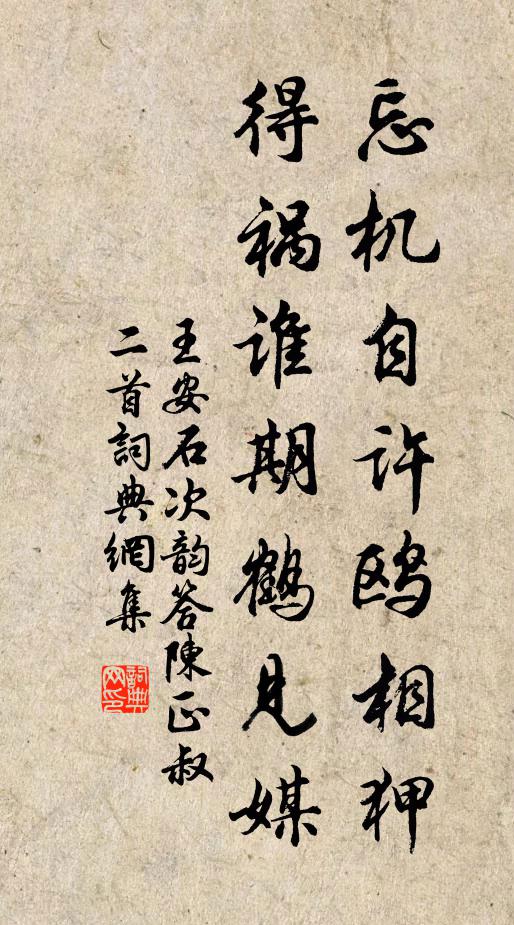 忘机自许鸥相狎
得祸谁期鹤见媒
王安石次韵答陳正叔
二首詞典網集
詞典
网印